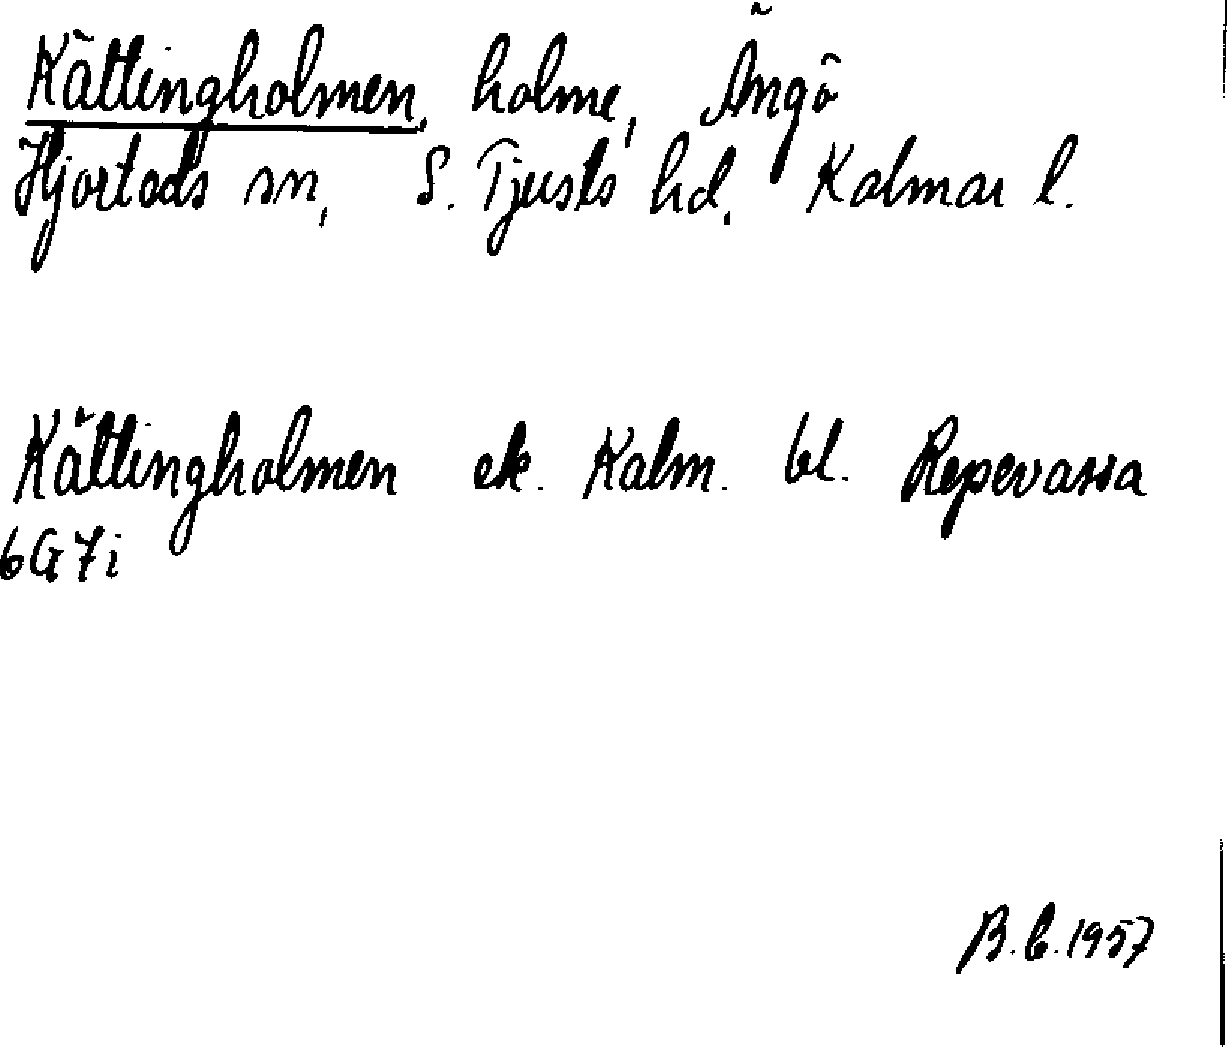 Kättingholmen, holme, Ängö
Hjorteds sn, S. Tjusts hd, Kalmar l.
Kättingholmen ek. Kalm. bl. Repevassa
6G7i
B.C. 1957